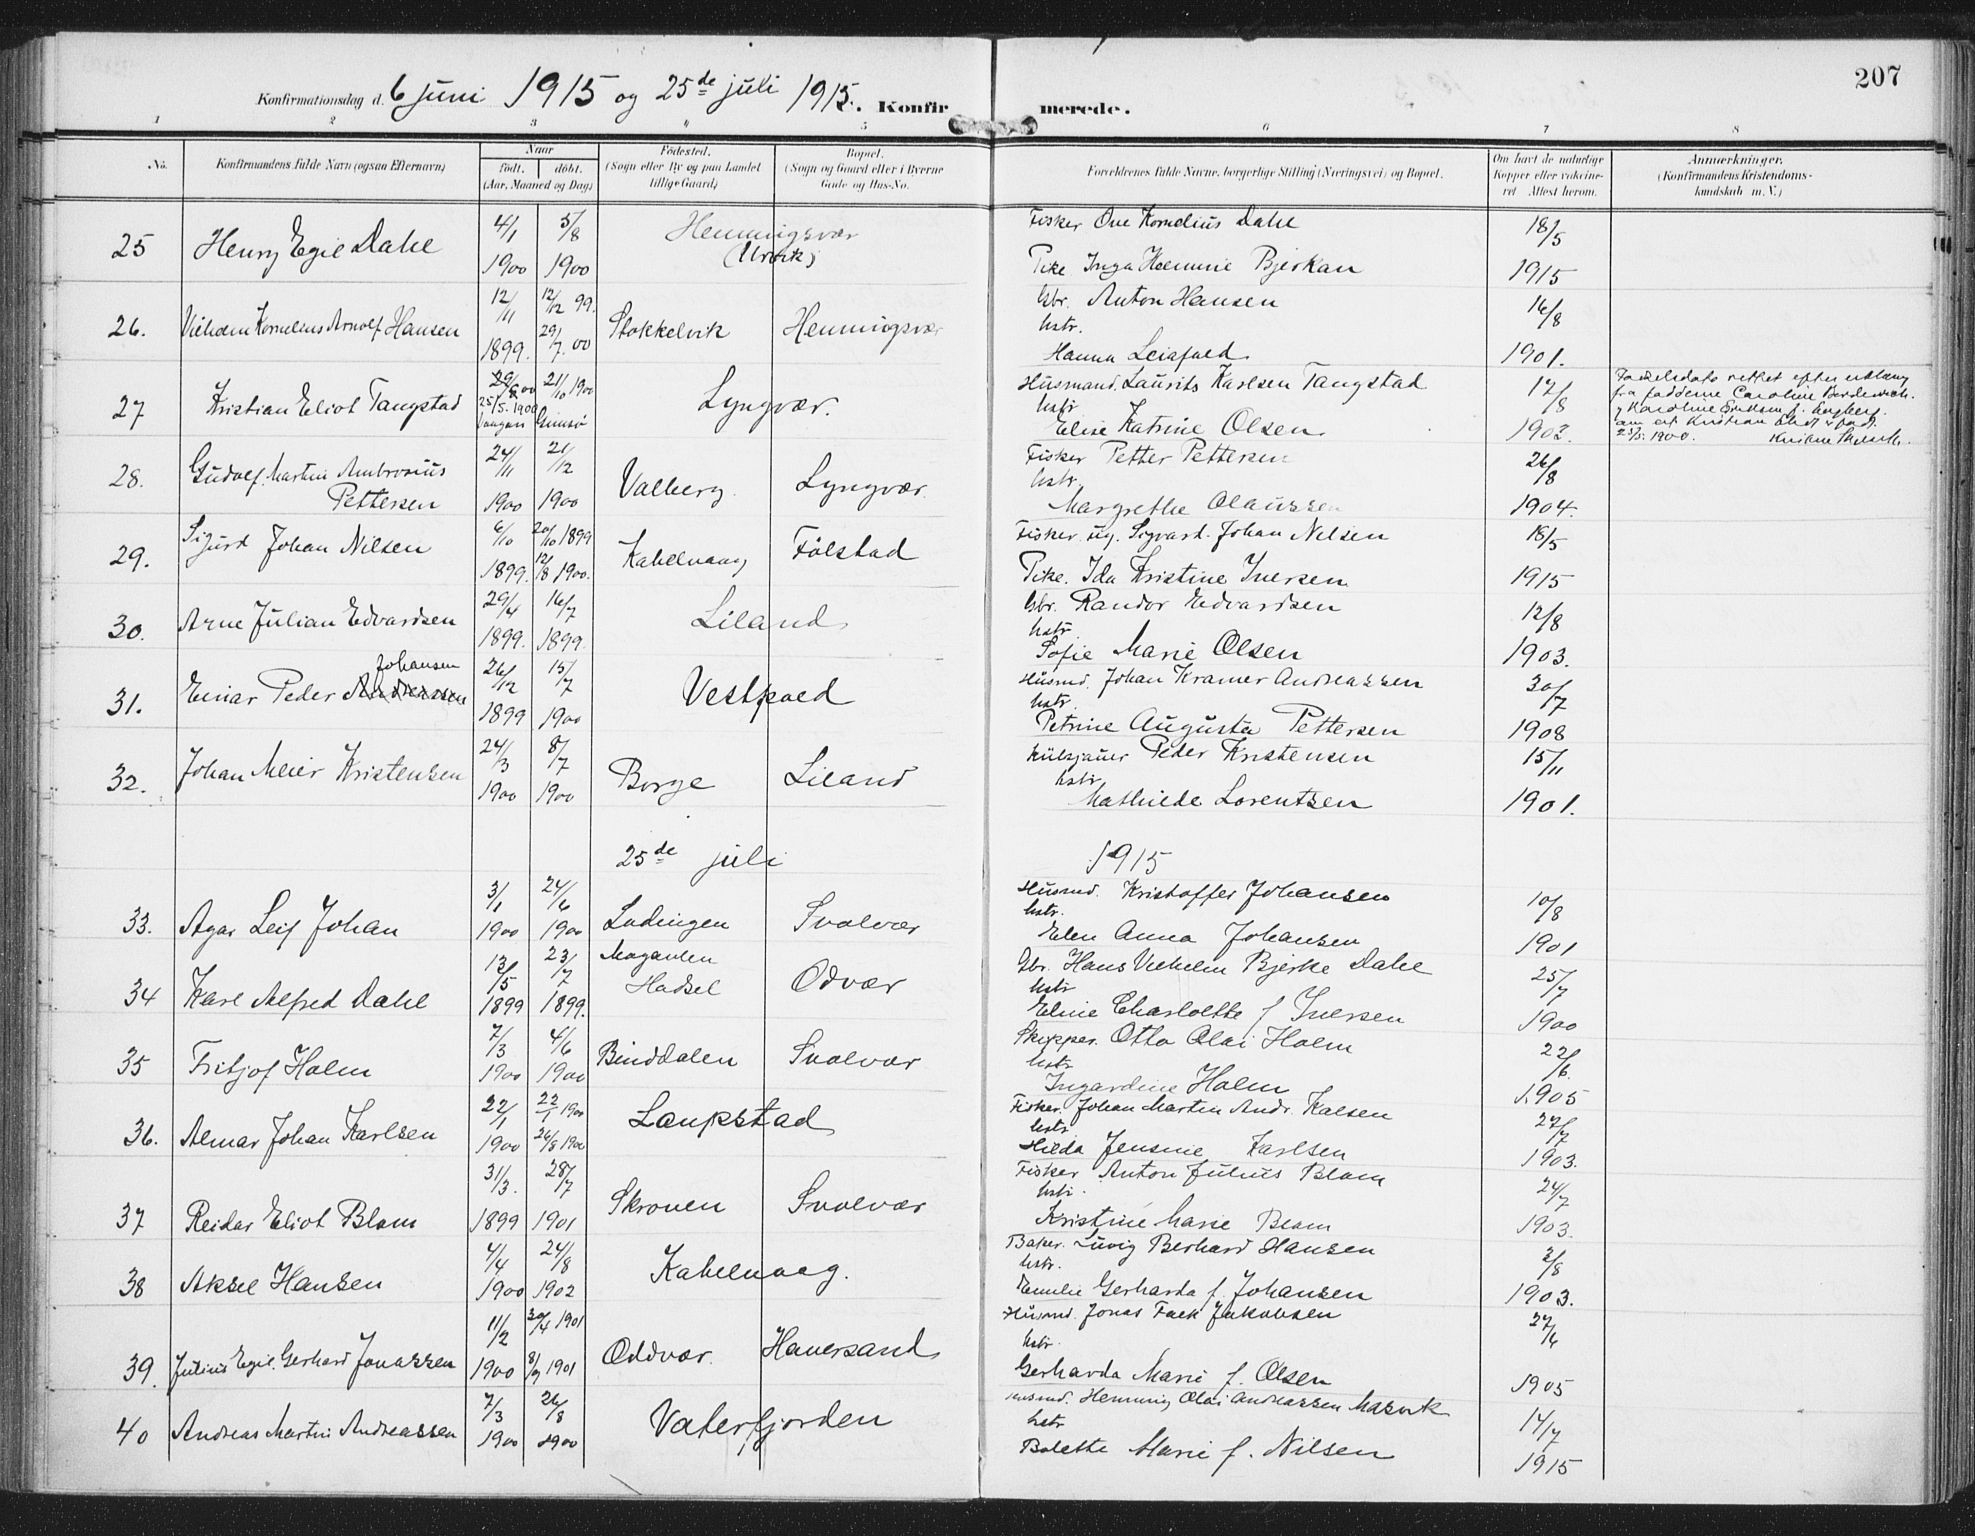 207
Konfirmationsdag d. 6 juni 1915 og 25de juli 1915. Konfirmerede.
1 2 3 4 5 6 7 8
No. Konfirmandens fulde Navn (ogsaa Efternavn) Naar født. døbt. (Aar, Maaned og Dag) Fødested. (Sogn eller By og paa Landet tillige Gaard) Bopæl. (Sogn og Gaard eller i Byerne Gade og Hus-No. Forældrenes fulde Navne, borgerlige Stilling (Næringsvei) og Bopæl. Om havt de naturlige Kopper eller vakcineret Attest herom. Anmærkninger. (Konfirmandens Kristendomskundskab m. V.)
25 Henry Egil Dahl 4/1 1900 5/8 1900 Henningsvær Fisker Ove Kornelius Dahl 18/5
Pike Inga Hemmie Bjerkan 1915
26. Vilhelm Kornelius Arnolf Hansen 12/11 1899. 12/12 99. 29/7 00 Stokkelvik Henningsvær Gbr. Anton Hansen 16/8
hstr.
Hanna Leiafald 1901.
27 Kristian Eliot Tangstad 25/5 1900 21/10 1900 Gimsø Lyngvær. Husmand. Laurits Karlsen Tangstad 17/8
hstr
Elise Katrine Olsen 1902.
28. Gudolf Martin Ambrosius Pettersen 24/11 1900 21/12 1900 Valberg. Lyngvær. Fisker Petter Pettersen 26/8
hstr.
Margrethe Olaussen 1904.
29. Sigurd Johan Nilsen 6/10 1899. 20/10 1899 12/8 1900. Kabelvaag Følstad Fisker. ug. Sigvard. Johan Nilsen 18/5
Pike. Ida Kristine Iversen 1915
30. Arne Julian Edvardsen 29/4 1899. 16/7 1899. Liland Gbr. Randor Edvardsen 12/8
hstr
Sofie Marie Olsen 1903.
31. Einar Peder Johansen 26/12 1899 15/7 1900 Vestpold Husmd. Johan Kramer Andreassen 30/7
hstr.
Petrine Augusta Pettersen 1908
32. Johan Meier Kristensen 24/3 1900 8/7 1900 Borge Liland Kulsjauer Peder Kristensen 15/11
hstr
Mathilde Lorentsen 1901.
25de juli 1915
33. Agar Leif Johan 3/1 1900 24/6 1900 Lødingen Svolvær Husmd. Kristoffer Johansen 10/8
hstr.
Elen Anna Johansen 1901
34 Karl Alfred Dahl 13/5 1899 23/7 1899. Hadsel Odvær Gbr. Hans Vilhelm Bjerke Dahl 25/7
hstr
Eline Charlotte f. Iversen 1900
35 Fritjof Holm 7/3 1900 4/6 1900 Binddalen Svolvær Skipper. Otto Olai Holm 22/6.
hstr
Ingardine Holm 1905
36. Almar Johan Karlsen 22/1 1900 22/1 1900 26/8 1900 Laupstad Fisker. Johan Martin Andr. Kalsen 27/7
hstr
Hilda Jensine Karlsen 1903.
37 Reidar Eliot Blom 31/3. 1899 28/7 1901 Skroven Svolvær Fisker Anton Julius Blom 24/7
hstr.
Kristine Marie Blom 1903.
38 Aksel Hansen 4/4 1900 24/8 1902 Kabelvaag. Baker. Luvig Berhard Hansen 3/8
hstr.
Emilie Gerharda f. Johansen 1903.
39. Julius Egil Gerhard Jonassen 11/2 1900 30/4 1901 8/9 1901 Oddvær. Haversand Husmd. Jonas Falk Jakobsen 27/6
hstr.
Gerharda Marie f. Olsen 1905
40 Andreas Martin Andreassen 7/3 1900 26/8 1900 Vaterfjorden Husmd. Henning Olai Andreassen Masvik 14/7
hstr
Bolette Marie f. Nilsen 1915